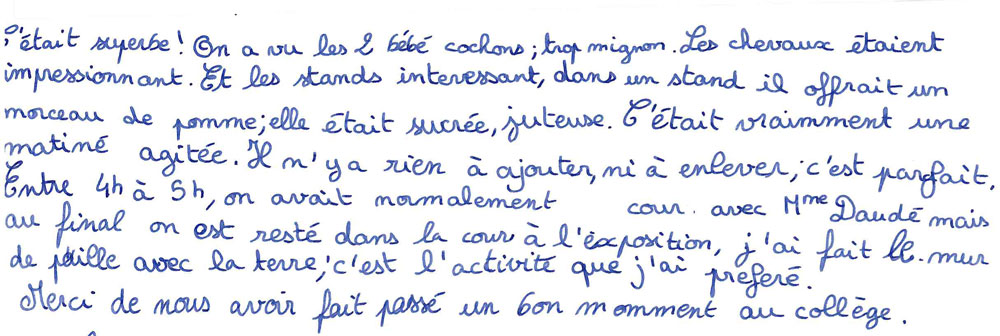 C'était superbe! On a vu les 2 bébé cochons; trop mignon. Les chevaux étaient
impressionnant. Et les stands interessant, dans un stand il offrait un
morceau de pomme; elle était sucrée, juteuse. C'était vraimment une
matiné agitée. Il n'y a rien à ajouter, ni à enlever; c'est parfait.
Entre 4h à 5h, on avait normalement cour. avec Mme Daudé mais
au final on est resté dans la cour à l'éxposition, j'ai fait le mur
de paille avec la terre; c'est l'activité que j'ai préferé.
Merci de nous avoir fait passé un bon momment au collège.